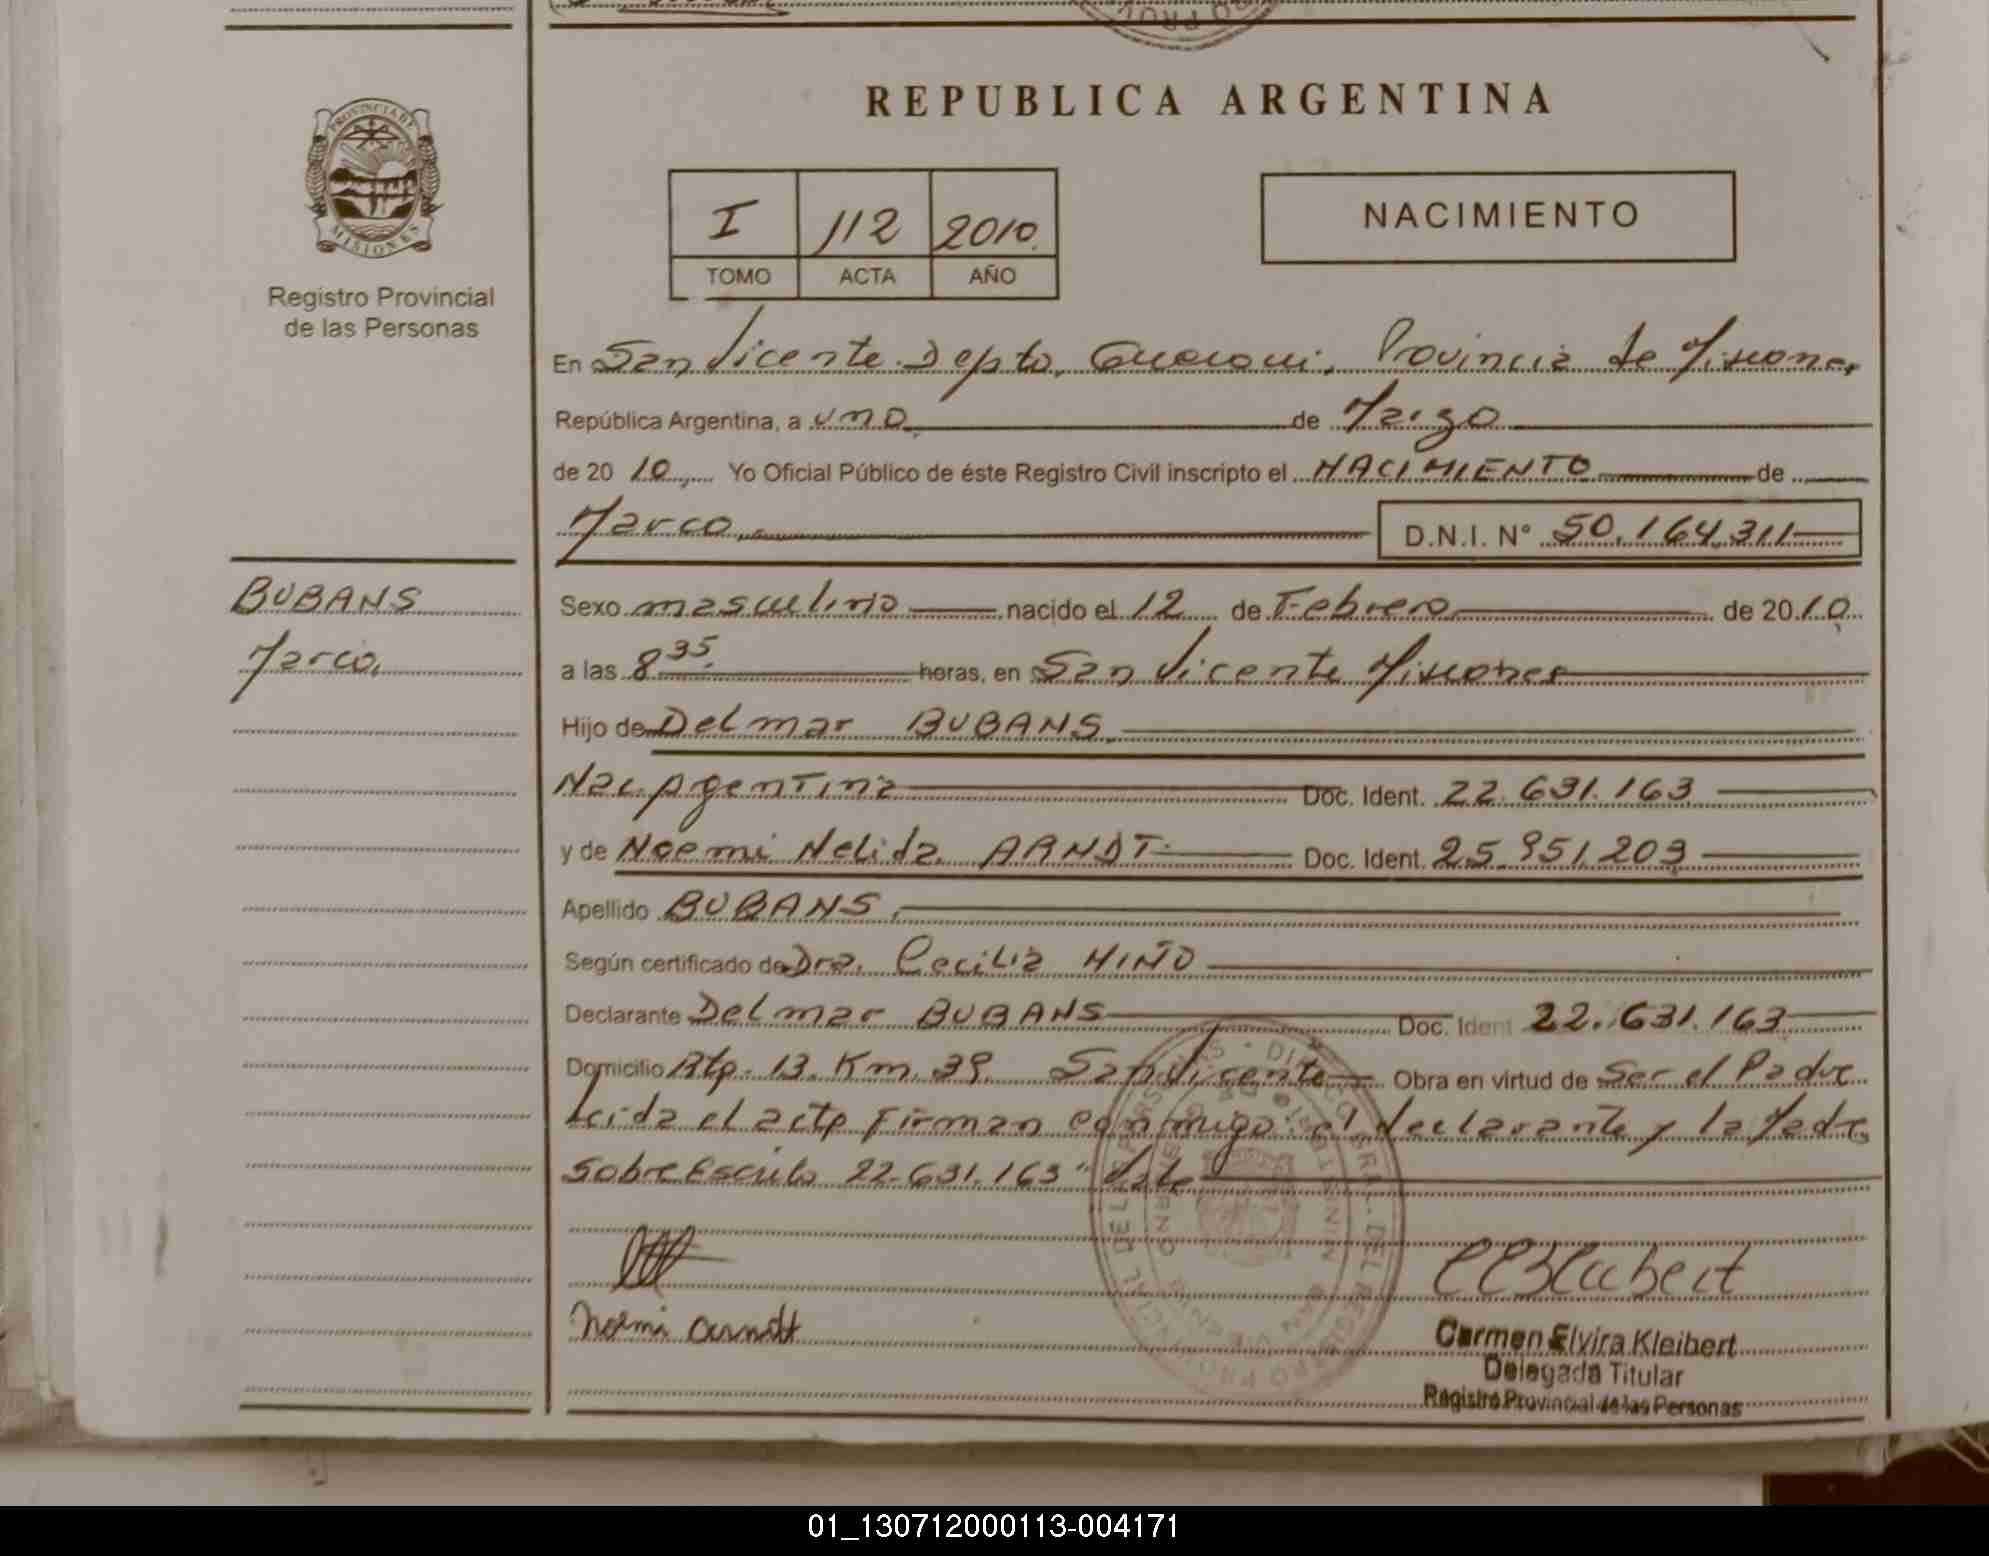 REPUBLICA ARGENTINA
PROVINCIA DE
MISIONES
Registro Provincial
de las Personas
I 112 2010.
TOMO ACTA AÑO
NACIMIENTO
En San Vicente Depto. Guarani. Provincia de Misiones
República Argentina, a uno de Marzo
de 20 10 Yo Oficial Público de éste Registro Civil inscripto el NACIMIENTO de
Marco D.N.I. N° 50.164.311
BUBANS
Marco.
Sexo masculino nacido el 12 de Febrero de 20 10
a las 8 35 horas, en San Vicente Misiones
Hijo de Delmar BUBANS
Nac. Agentina Doc. Ident. 22.631.163
y de Noemi Nelida ARNDT Doc. Ident. 25.951.203
Apellido BUBANS
Según certificado de Dra. Cecilia MIÑO
Declarante Delmar BUBANS Doc. Ident 22.631.163
Domicilio Rtp. 13. Km. 39. San Vicente Obra en virtud de Ser el Padre
Leida el acta Firman conmigo el declarante y la Madre
Sobre Escrito 22.631.163" Vale
Noemi Arndt
Carmen Elvira Kleibert
Delegada Titular
Registro Provincial de las Personas
01_130712000113-004171